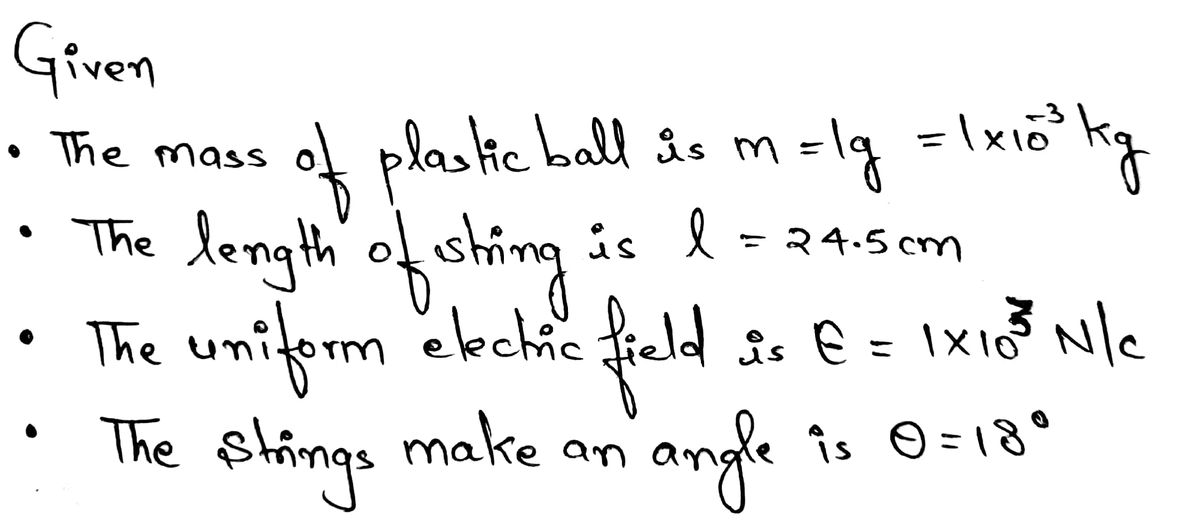 Given
• The mass of plastic ball is m = 1g = 1x10⁻³ kg
• The length of string is l = 24.5 cm
• The uniform electric field is E = 1x10³ N/c
• The strings make an angle is θ = 18°